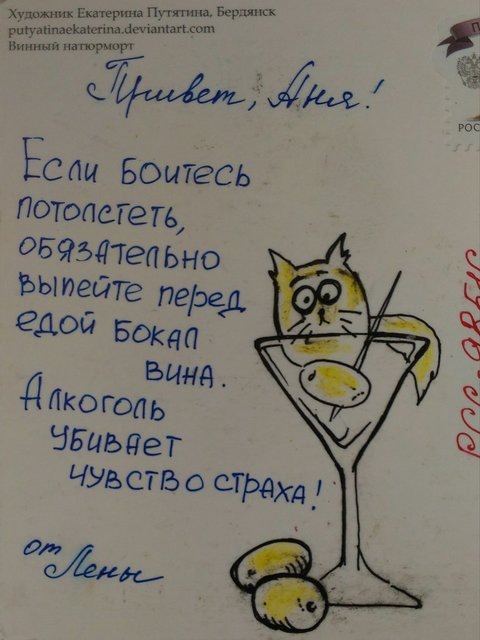 Художник Екатерина Путятина, Бердянск
putyatinaekaterina.deviantart.com
Винный натюрморт
Привет, Аня!
Если боитесь
потолстеть,
обязательно
выпейте перед
едой бокал
вина.
Алкоголь
убивает
чувство страха!
от Лены
РОС